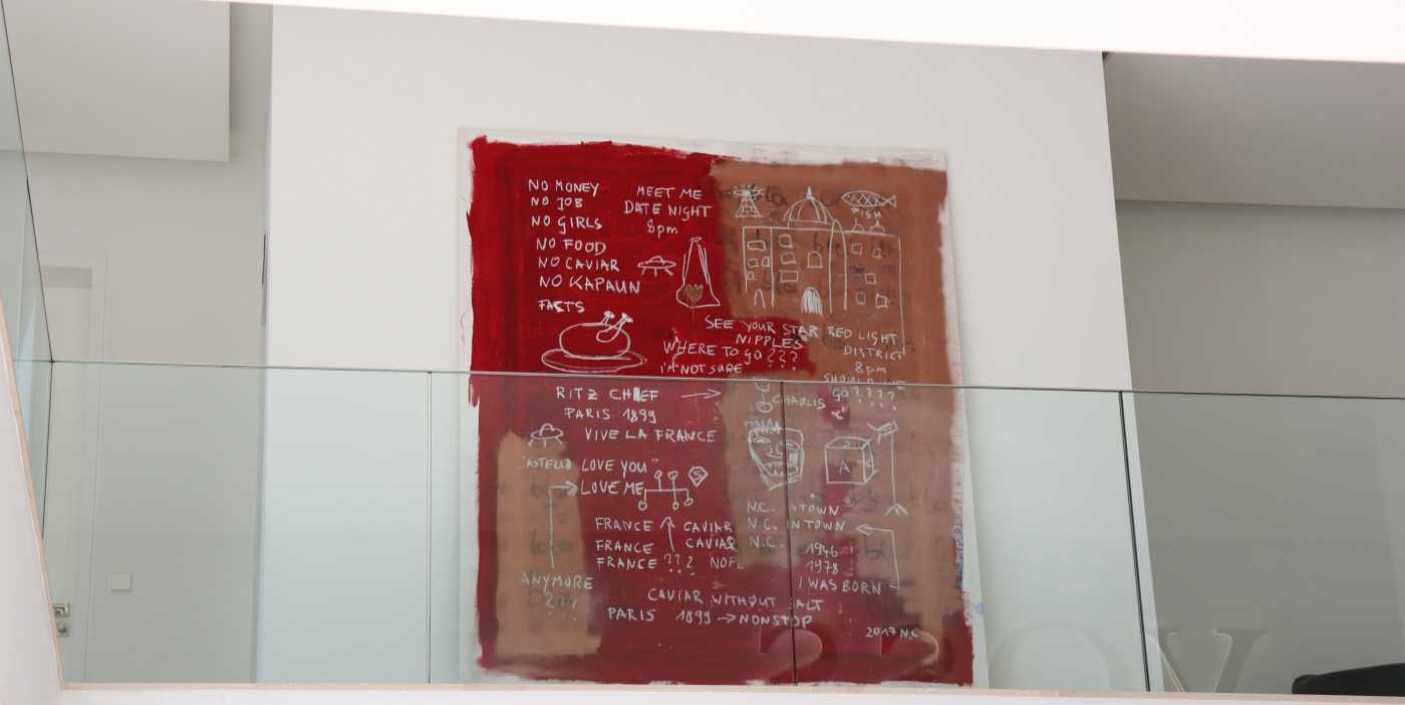 NO MONEY
NO JOB
NO GIRLS
NO FOOD
NO CAVIAR
NO KAPAUN
FACTS
MEET ME
DATE NIGHT
8pm
FISH
SEE YOUR STAR
NIPPLES
WHERE TO GO ???
I'M NOT SURE
RED LIGHT
DISTRICT
8pm
GO ????
CHABLIS
RITZ CHIEF
PARIS 1899
VIVE LA FRANCE
LOVE YOU
LOVE ME
S
A
FRANCE
FRANCE
FRANCE ???
CAVIAR
CAVIAR
N.C. INTOWN
N.C. INTOWN
N.C.
1946
1978
I WAS BORN
ANYMORE
CAVIAR WITHOUT SALT
PARIS 1899 → NONSTOP
2017 N.C.